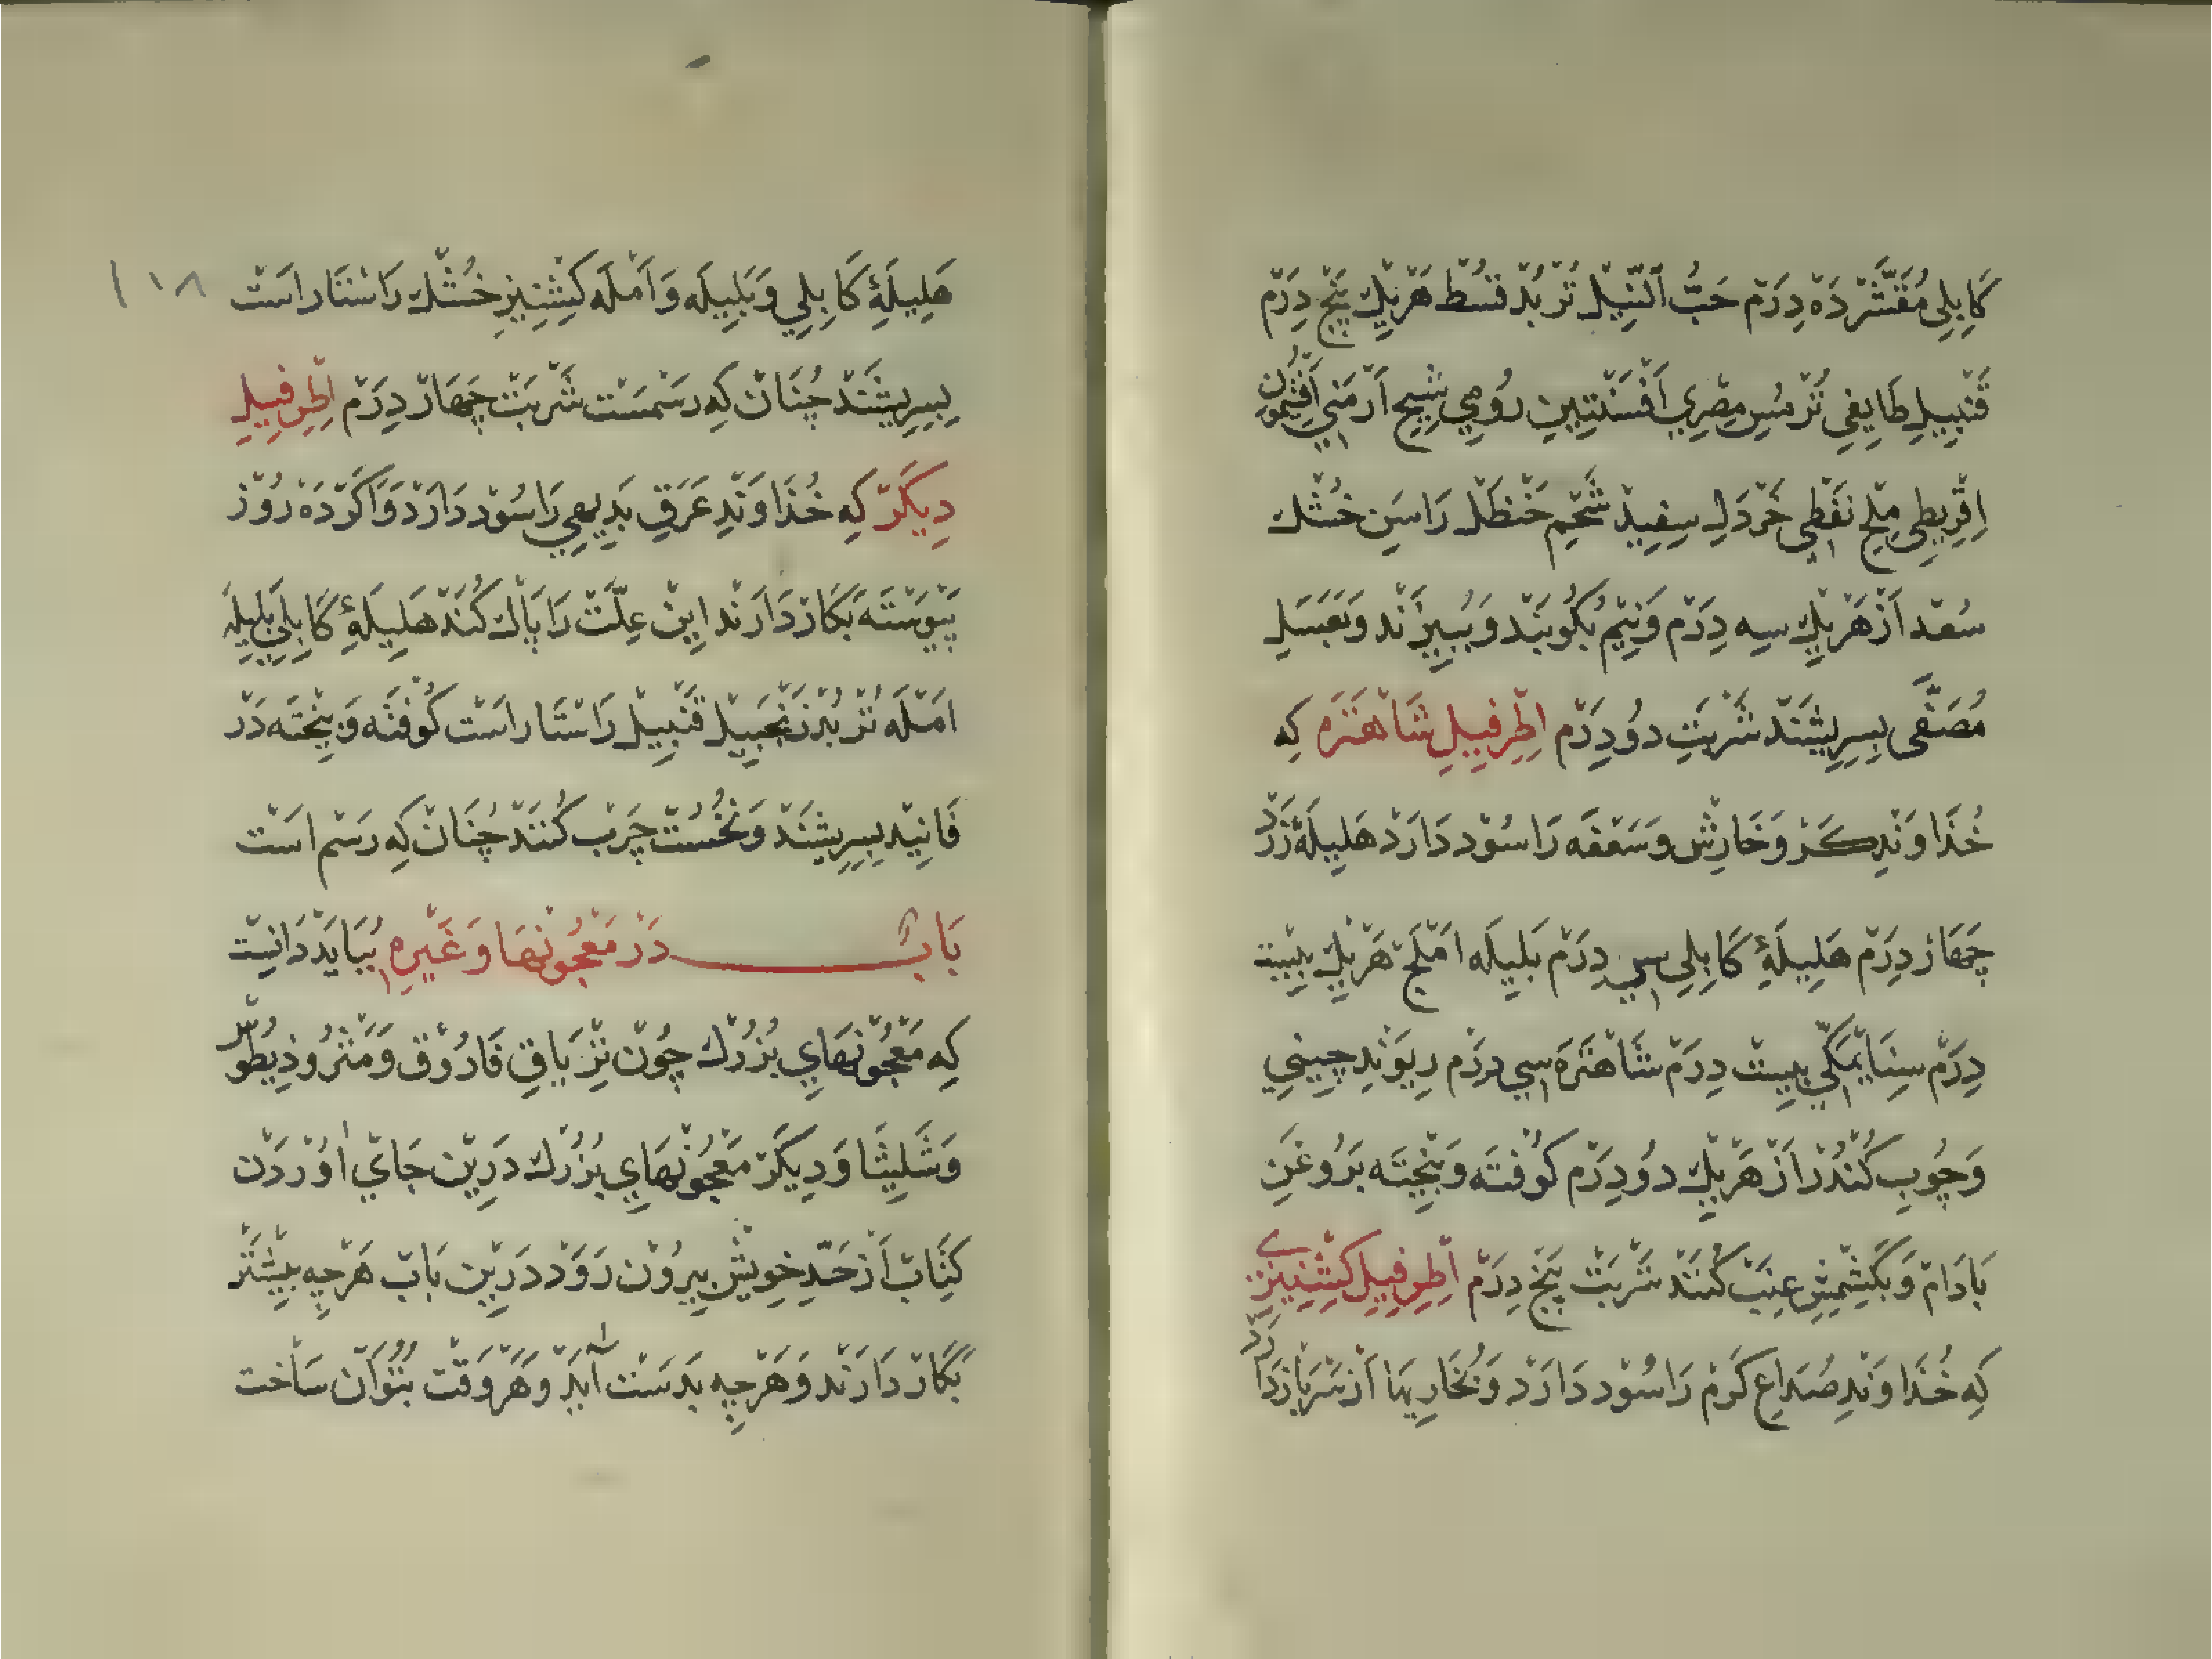 كَابِلِي مُقَشَّرْ دَه دِرَمْ حَبُّ ٱلنِّيلْ تُرْبُدْ قُسْطْ هَرْيِكْ پَنْج دِرَمْ
قَنْبِيلِ طَايِفِي تُرْمُسِ مِصْرِي اَفْسَنْتِينِ رُومِي شِيحِ اَرْمَنِي اَفْتِيمُونِ
اِقْرِيطِي مِلْحِ نَفْطِي خَرْدَلِ سِفِيدْ شَحْمِ حَنْظَلْ رَاسَنِ خُشْك
سُعْد اَزْ هَرْيِكْ سِه دِرَمْ وَنِيمْ بِكُوبَنْد وَبِبِيزَنْد وَبَعَسَلِ
مُصَفَّى بِسِرِيشَنْد شَرْبَتِ دُودِرَمْ اِطْرِفِيلِ شَاهْتَرَه كِه
خُذَاوَنْدِ كَرْ وَخَارِشْ وَسَعْفَه رَا سُوْد دَارَدْ هَلِيلَهٔ زَرْدْ
چَهَارْ دِرَمْ هَلِيلَهٔ كَابِلِي سِي دِرَمْ بَلِيلَه اَمْلَجْ هَرْيِكْ بِيسْت
دِرَمْ سِنَايِ مَكِّي بِيسْت دِرَمْ شَاهْتَرَه سِي دِرَمْ رِيوَنْدِ چِينِي
وَچُوبِ كُنْدُرْ اَزْ هَرْيِكْ دُودِرَمْ كُوفْتَه وَبِيخْتَه بَرُوغَنِ
بَادَامْ وَبَكِشْمِشْ عِنَبْ كُنَنْدْ شَرْبَتْ پَنْج دِرَمْ اِطْرِفِيلِ كِشْنِيزِي
كِه خُذَاوَنْدِ صُدَاعِ كَرْمْ رَا سُوْد دَارَدْ وَبُخَارِيهَا اَزْ سَرْ بَازْدَارَدْ
١١٨
هَلِيلَهٔ كَابِلِي وَبَلِيلَه وَاَمْلَه كِشْنِيزِ خُشْك رَاسْتَارَاسْت
بِسِرِيشَنْد چُنَانْ كِه رَسْمَسْت شَرْبَتْ چَهَارْ دِرَمْ اِطْرِفِيلِ
دِيكَرْ كِه خُذَاوَنْدِ عَرَقِ بَدِيعِي رَا سُوْد دَارَدْ وَاكَرْ دَه رُوْز
پَيْوَسْتَه بَكَارْ دَارَنْد اِينْ عِلَّتْ رَا پَاكْ كُنَدْ هَلِيلَهٔ كَابِلِي بَلِيلَه
اَمْلَه تُرْبُدْ زَنْجَبِيلْ قَنْبِيلْ رَاسْتَارَاسْت كُوفْتَه وَبِيخْتَه دَرْ
فَانِيْد بِسِرِيشَنْد وَنَخُسْتْ چَرْب كُنَنْد چُنَانْ كِه رَسْم اَسْت
بَابْ دَرْ مَعْجُونْهَا وَغَيْرِهِ بِبَايَدْ دَانِسْت
كِه مَعْجُونْهَايِ بُزُرْك چُونْ تِرْيَاقِ فَارُوْق وَمَثْرُوذِيطُوْسْ
وَشَلِيثَا وَدِيكَرْ مَعْجُونْهَايِ بُزُرْك دَرِينْ جَايْ اٰوُرْدَنْ
كِتَابْ اَزْ حَدِّ خِويشْ بِيرُوْنْ رَوَد دَرِينْ بَابْ هَرْچِه بِيشْتَرْ
بَكَارْ دَارَنْد وَهَرْچِه بَدَسْت آيَدْ وَهَرْوَقْتْ بِتُوَانْ سَاخْت